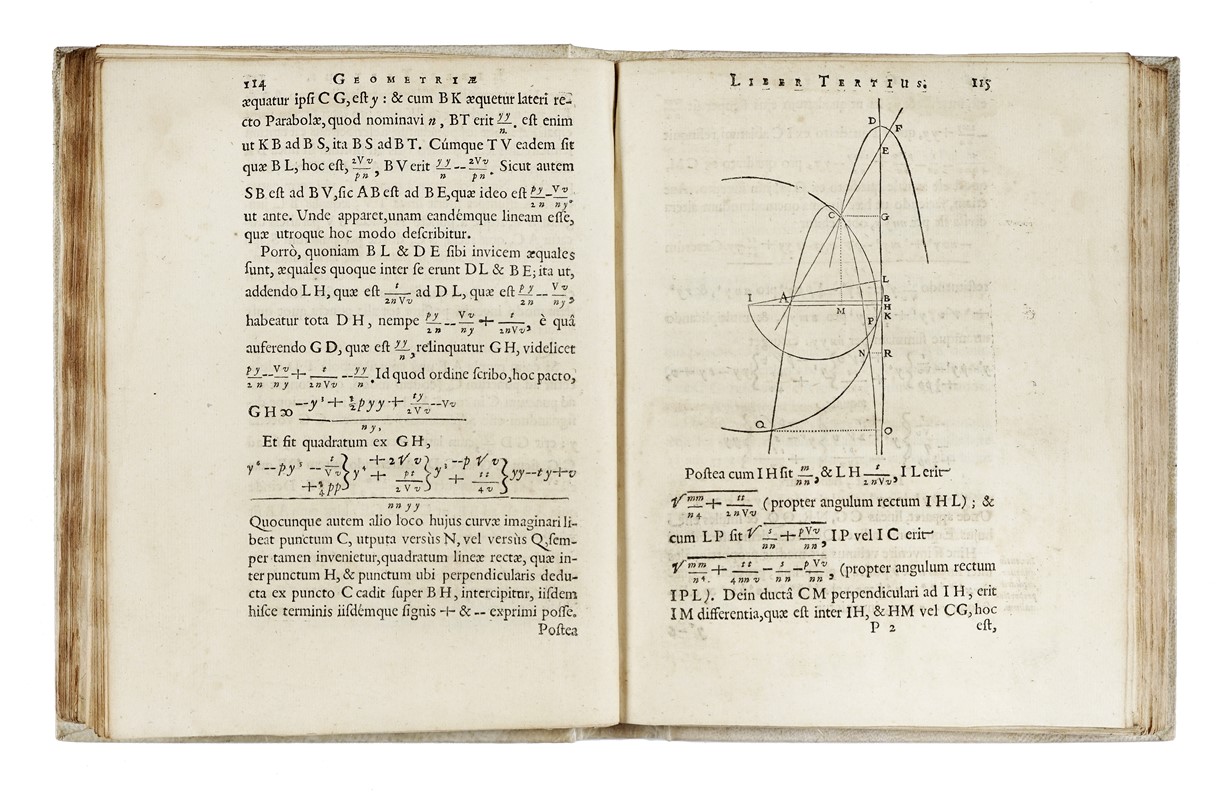 114 GEOMETRIÆ
æquatur ipsi CG, est y : & cum BK æquetur lateri re-
cto Parabolæ, quod nominavi n, BT erit yy/n. est enim
ut KB ad BS, ita BS ad BT. Cúmque TV eadem sit
quæ BL, hoc est, 2Vv/pn, BV erit yy/n -- 2Vv/pn. Sicut autem
SB est ad BV, sic AB est ad BE, quæ ideo est py/2n -- Vv/ny,
ut ante. Unde apparet, unam eandémque lineam esse,
quæ utroque hoc modo describitur.
Porrò, quoniam BL & DE sibi invicem æquales
sunt, æquales quoque inter se erunt DL & BE; ita ut,
addendo LH, quæ est t/2nVv ad DL, quæ est py/2n -- Vv/ny,
habeatur tota DH, nempe py/2n -- Vv/ny + t/2nVv, è quâ
auferendo GD, quæ est yy/n, relinquatur GH, videlicet
py/2n -- Vv/ny + t/2nVv -- yy/n. Id quod ordine scribo, hoc pacto,
GH ∞ --y³ + ½pyy + ty/2Vv -- Vv / ny,
Et sit quadratum ex GH,
y⁶ -- py⁵ -- t/Vv + ¼pp } y⁴ + 2Vv + pt/2Vv } y³ -- pVv + tt/4v } yy -- ty + v
nnyy
Quocunque autem alio loco hujus curvæ imaginari li-
beat punctum C, utputa versùs N, vel versus Q, sem-
per tamen invenietur, quadratum lineæ rectæ, quæ in-
ter punctum H, & punctum ubi perpendicularis dedu-
cta ex puncto C cadit super BH, intercipitur, iisdem
hisce terminis iisdémque signis + & -- exprimi posse.
Postea
LIBER TERTIUS. 115
D
F
E
C
G
L
I
A
B
H
M
K
P
N
R
Q
O
Postea cum IH sit m/nn, & LH t/2nVv, IL erit
√ mm/n4 + tt/2nVv (propter angulum rectum IHL); &
cum LP sit √ s/nn + pVv/nn, IP vel IC erit
√ mm/n4. + tt/4nnv -- s/nn -- pVv/nn, (propter angulum rectum
IPL). Dein ductâ CM perpendiculari ad IH, erit
IM differentia, quæ est inter IH, & HM vel CG, hoc
P 2 est,